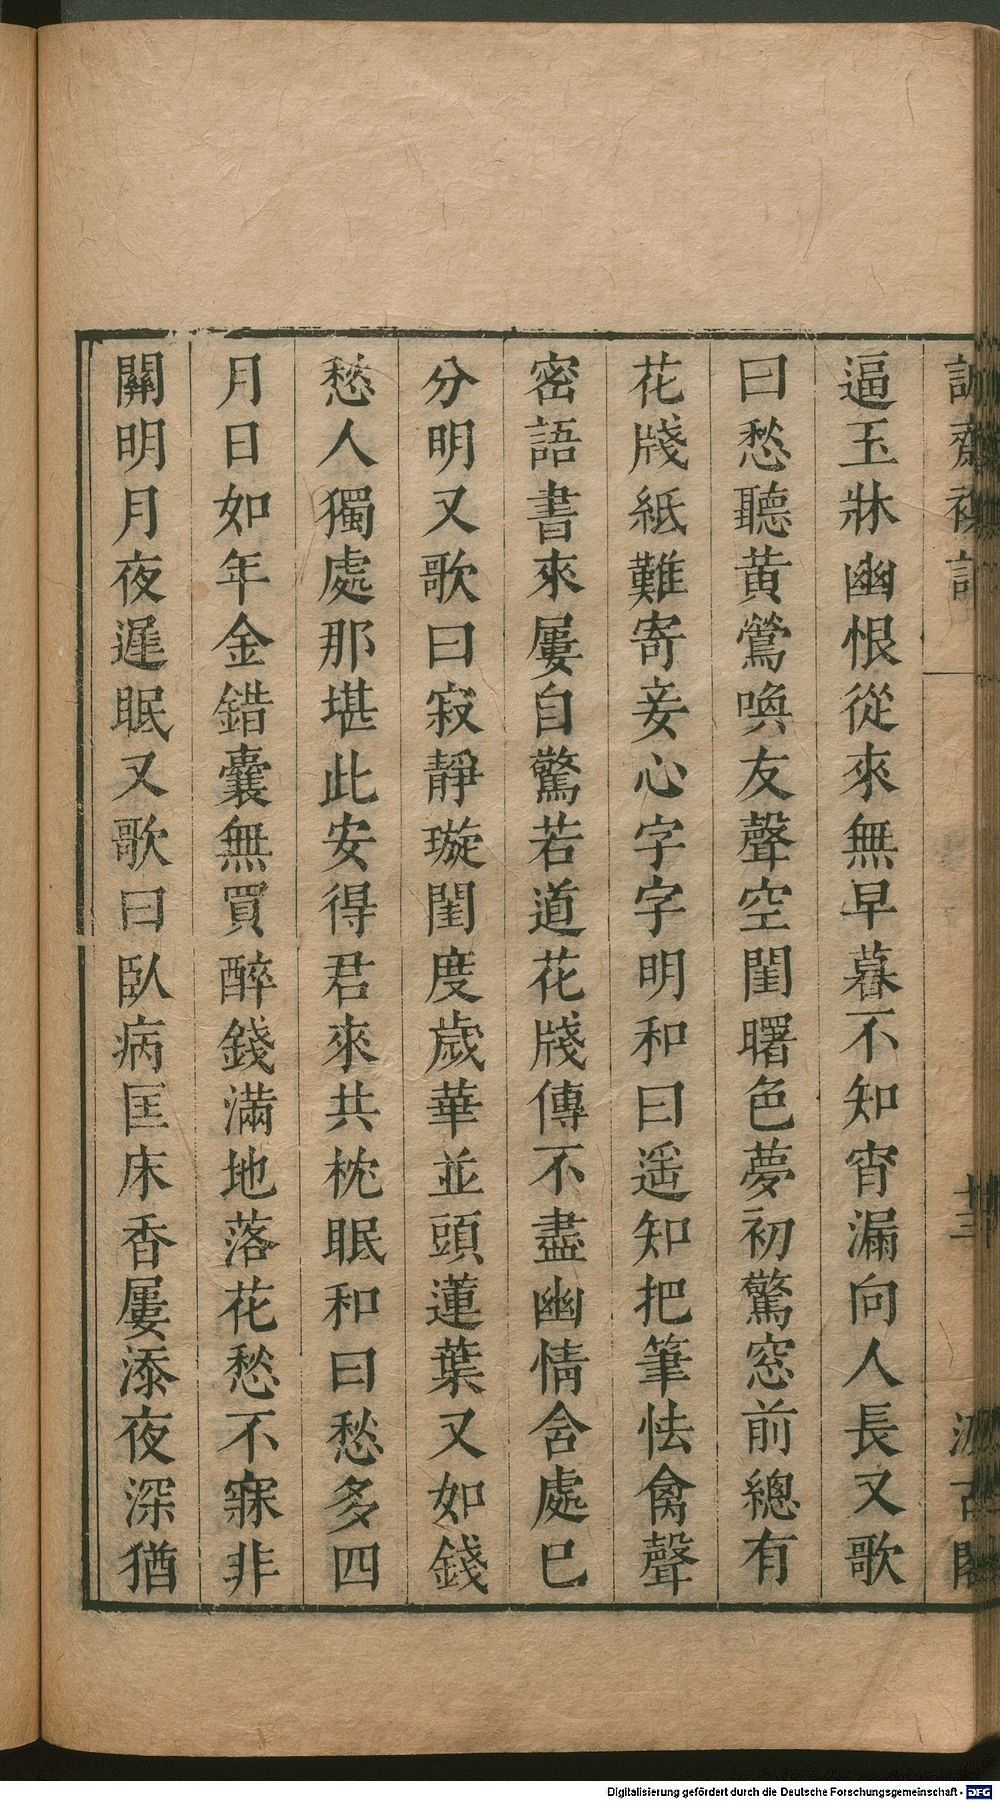 逼玉牀幽恨從來無早暮不知宵漏向人長又歌
曰愁聽黃鶯喚友聲空閨曙色夢初驚窓前總有
花牋紙難寄妾心字字明和曰遥知把筆怯禽聲
密語書來屢自驚若道花牋傳不盡幽情含處已
分明又歌曰寂靜璇閨度歲華並頭蓮葉又如錢
愁人獨處那堪此安得君來共枕眠和曰愁多四
月日如年金錯囊無買醉錢滿地落花愁不寐非
關明月夜遲眠又歌曰臥病匡床香屢添夜深猶
十三
汲古閣
Digitalisierung gefördert durch die Deutsche Forschungsgemeinschaft - DFG